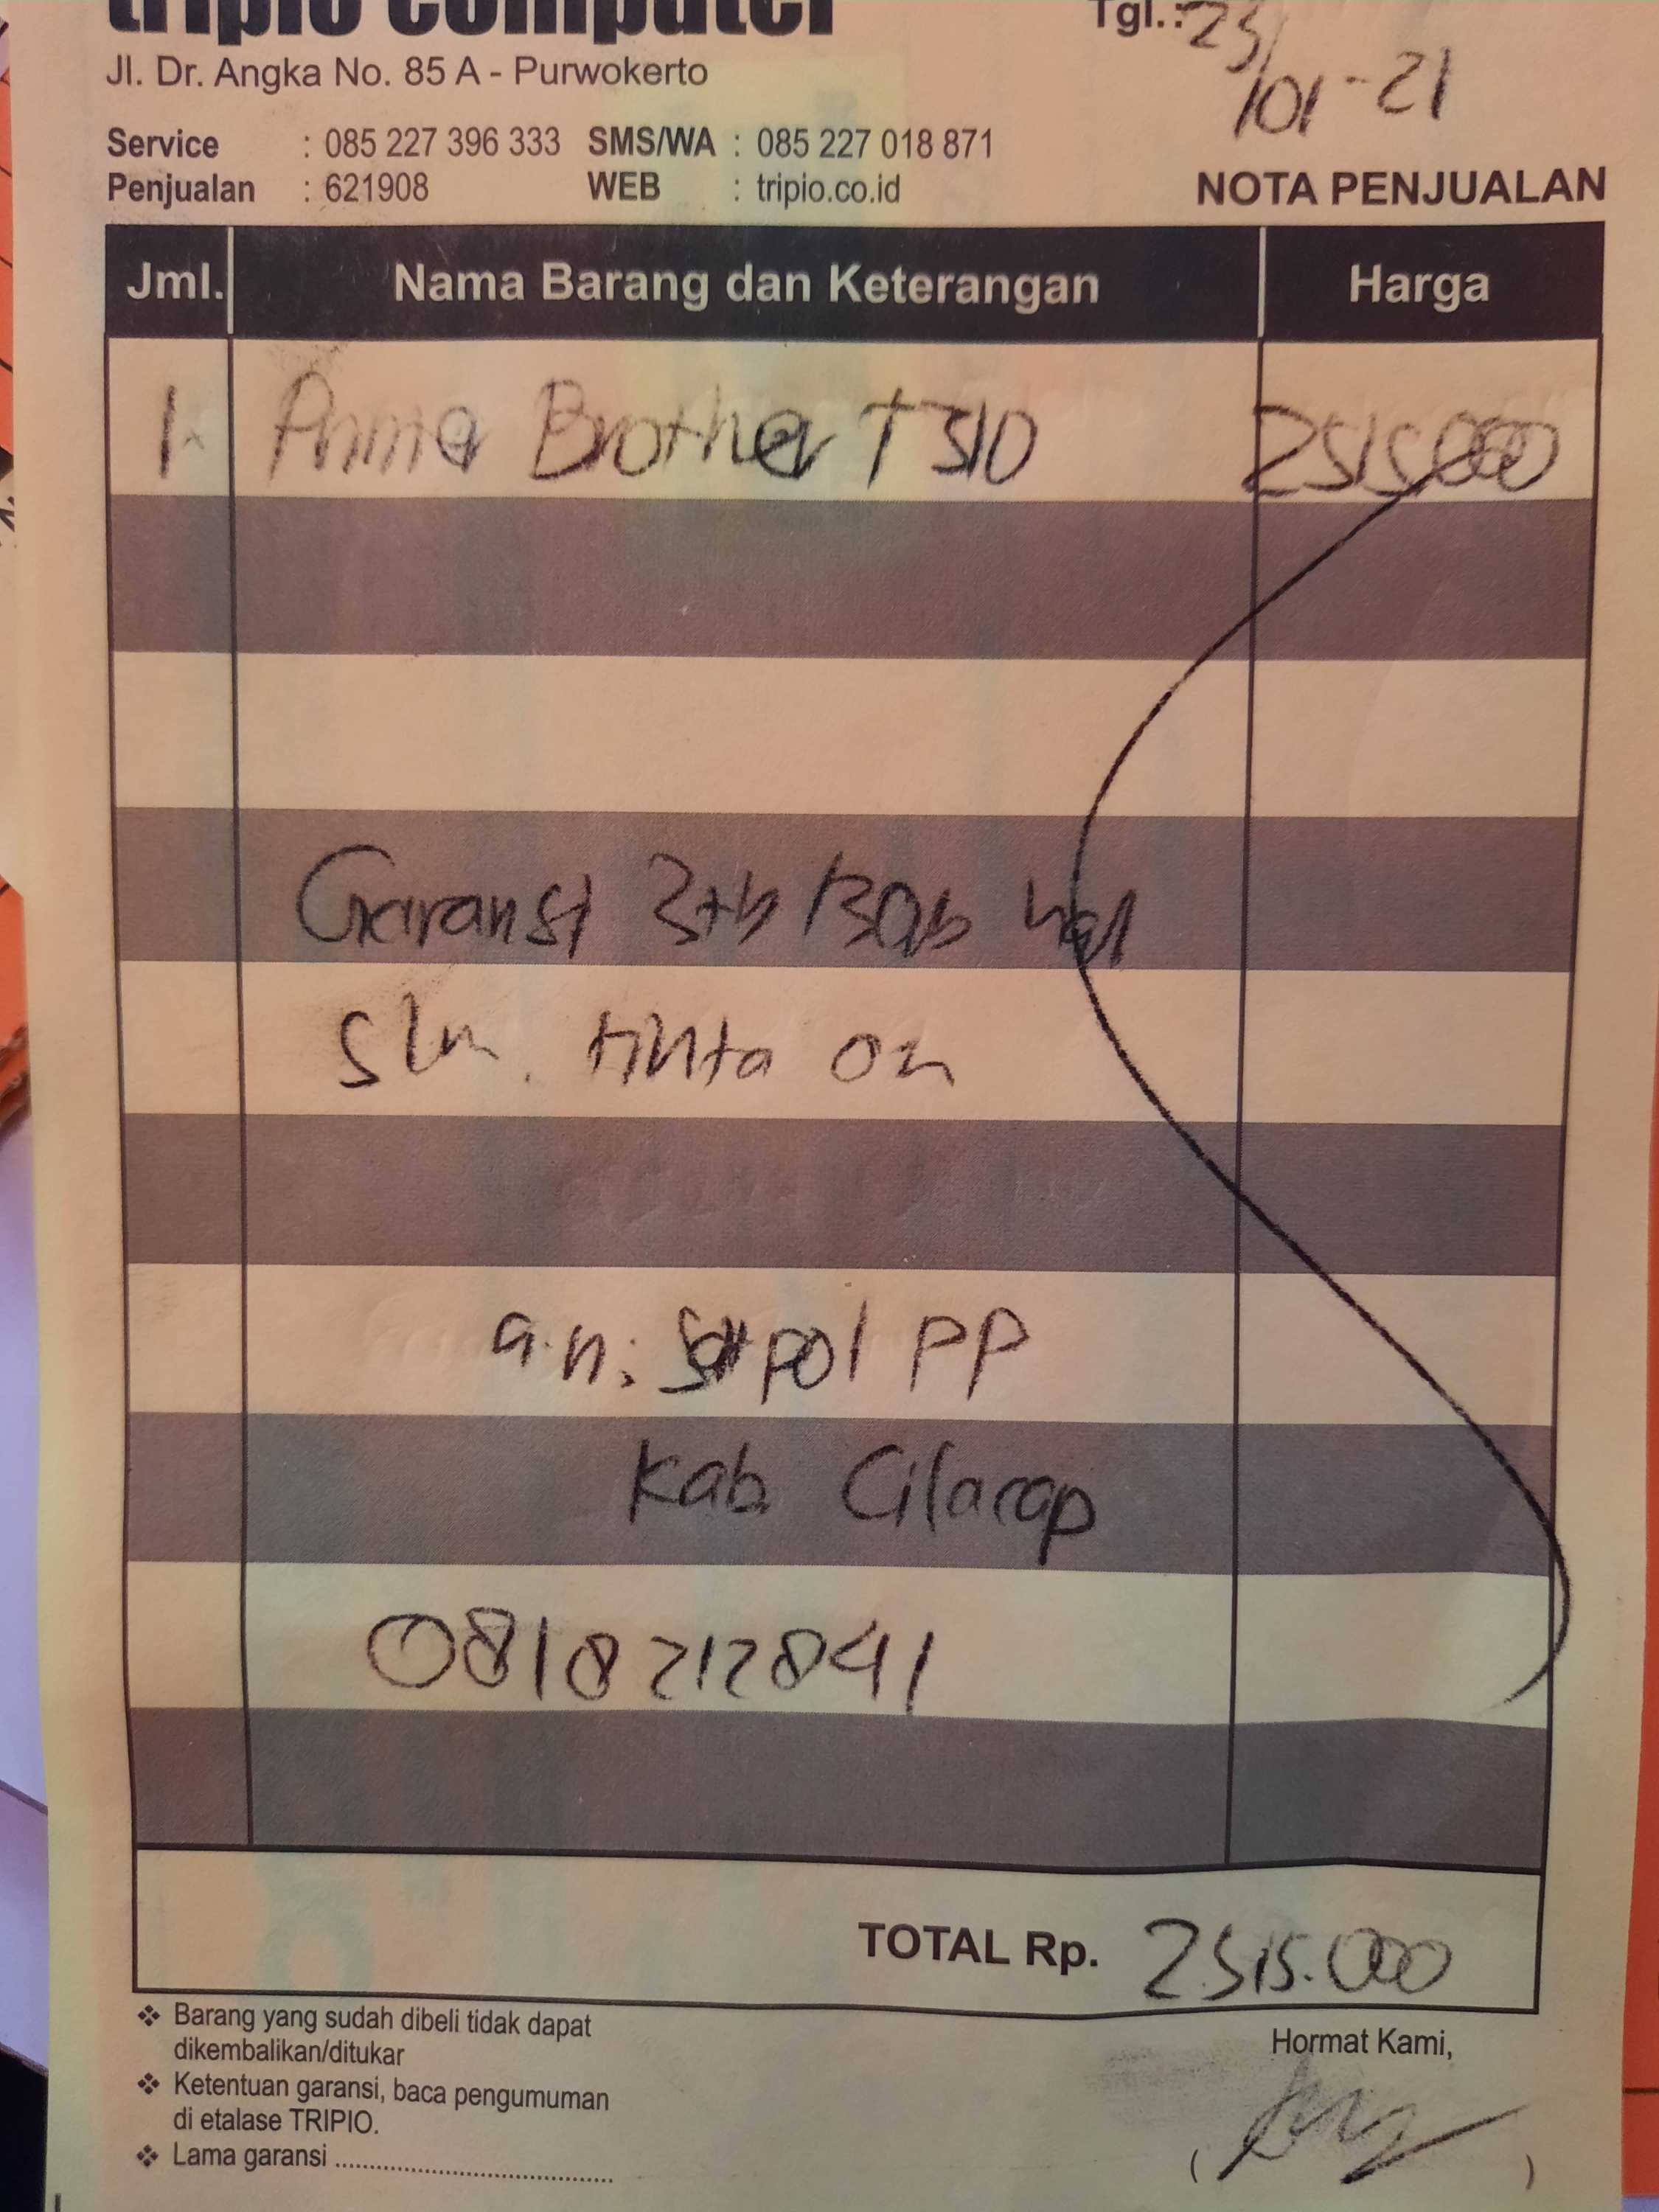 tripio computer
Tgl.: 23/01-21
Jl. Dr. Angka No. 85 A - Purwokerto
Service : 085 227 396 333 SMS/WA : 085 227 018 871
Penjualan : 621908 WEB : tripio.co.id
NOTA PENJUALAN
Jml. Nama Barang dan Keterangan Harga
1 Printer Brother T310 2515.000
Garansi 3th/30rb hal
Slm. tinta ori
a.n: Satpol PP
Kab. Cilacap
0818212841
TOTAL Rp. 2515.000
❖ Barang yang sudah dibeli tidak dapat
dikembalikan/ditukar
❖ Ketentuan garansi, baca pengumuman
di etalase TRIPIO.
❖ Lama garansi ........................................
Hormat Kami,
( )